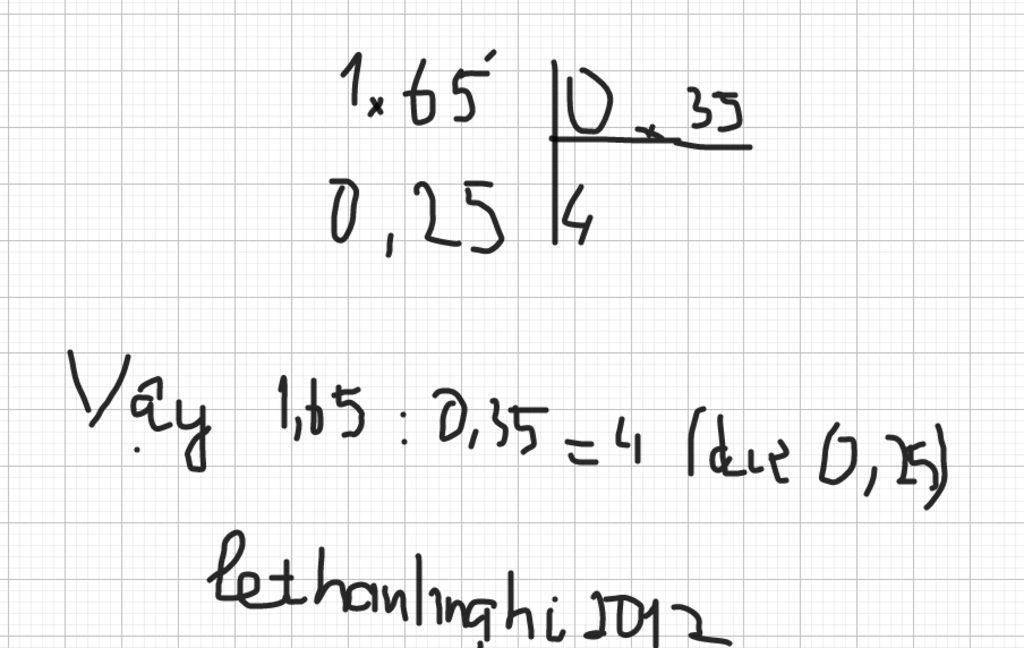 1,65 0,35
0,25 4
Vậy 1,65 : 0,35 = 4 (dư 0,25)